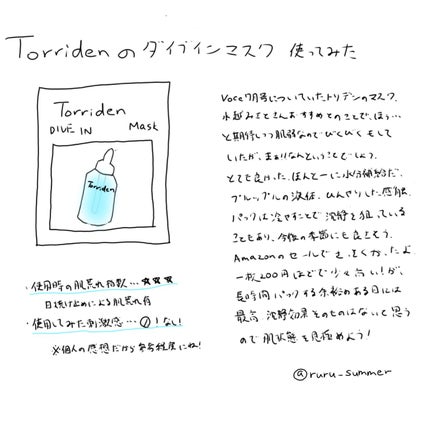 Torridenのダイブインマスク 使ってみた
Torriden
DIVE IN Mask
Torriden
・使用時の肌荒れ指数…☆☆☆
日焼け止めによる肌荒れ有
・使用してみた刺激感…0！なし！
※個人の感想だから参考程度にね！
Voce7月号についていたトリデンのマスク、
水越みさとさんおすすめとのことで、ほぅ…
と期待しつつ肌弱なのでびくびくもして
いたが、まぁなんということでしょう。
とても良かった。ほんとーに水分補給だ。
プルップルの液体。ひんやりした感触。
パックは冷やすことで沈静を狙っている
こともあり、今後の季節にも良さそう。
Amazonのセールで
一枚200円ほどで少々高い！が、
長時間パックする余裕のある日には
最高。沈静効果そのものはないと思う
ので肌状態を見極めよう！
@ruru_summer